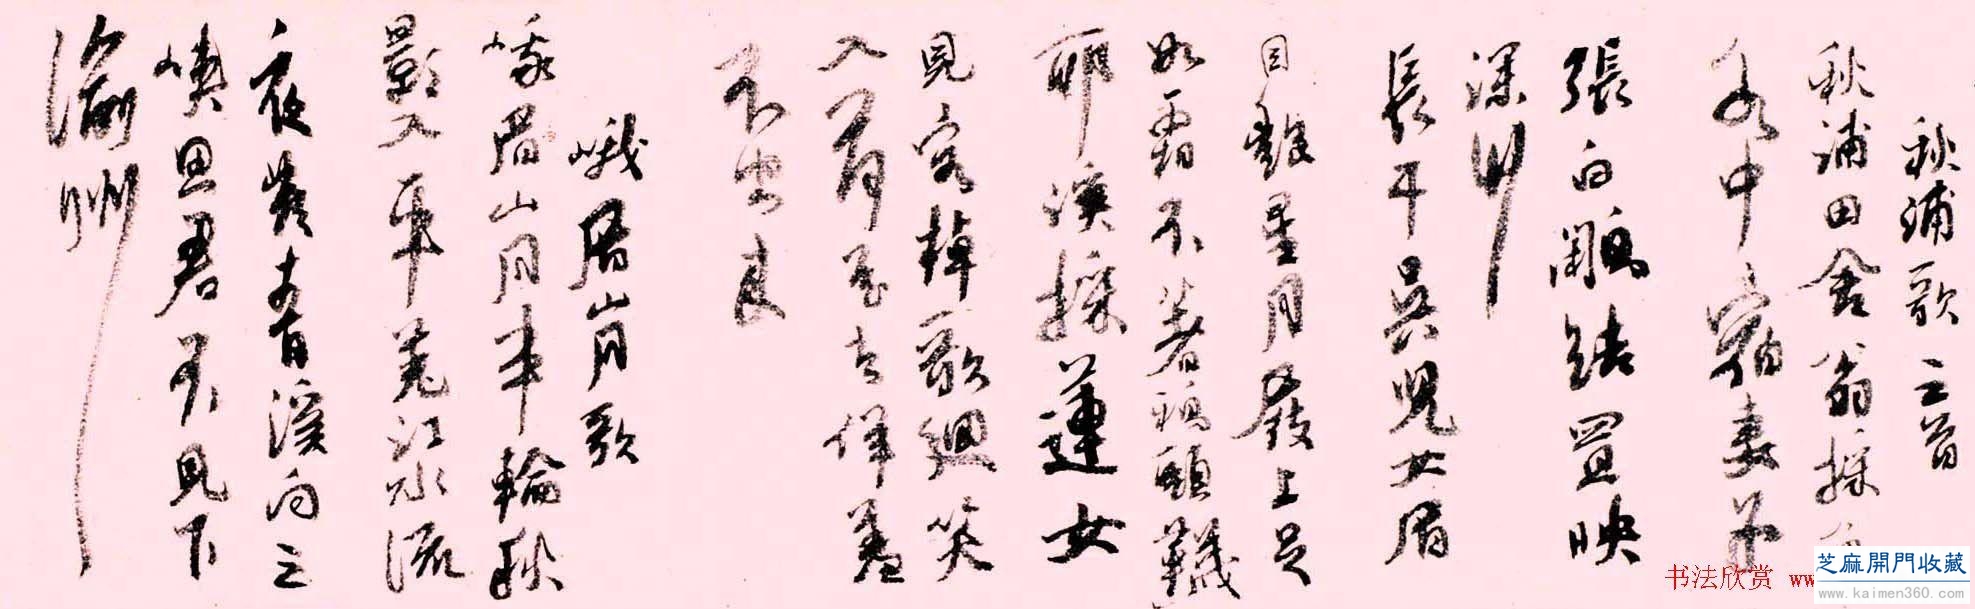 秋浦歌三首
秋浦田舍翁採魚
水中宿妻子
張白鷴結罝映
深竹
長干吳兒女眉
目豔星月屐上足
如霜不著鴉頭襪
耶溪採蓮女
見客棹歌迴笑
入荷花去佯羞
不出來
峨眉山月歌
峨眉山月半輪秋
影入平羌江水流
夜發青溪向三
峽思君不見下
渝州
书法欣赏 ww
芝麻開門收藏
www.kaimen360.com